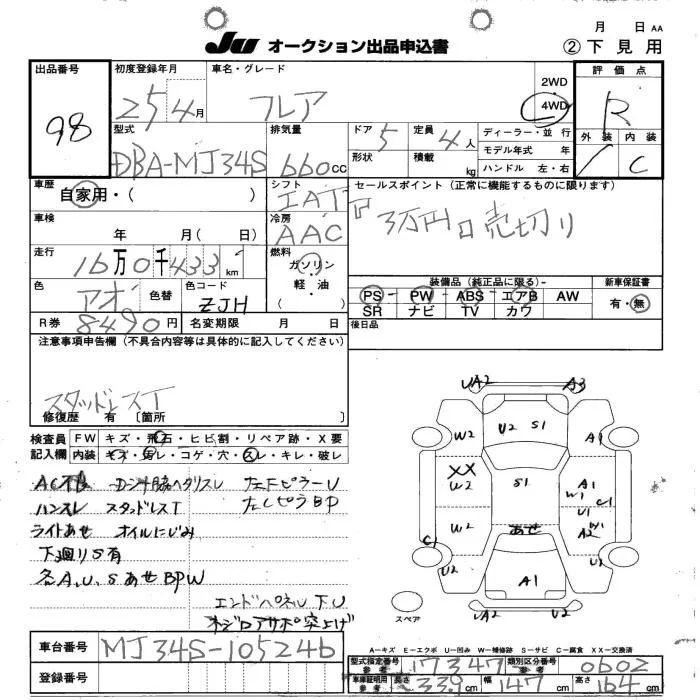 Ju オークション出品申込書
月 日 AA
② 下 見 用
出品番号
98
初度登録年月
25 4月
車名・グレード
フレア
2WD
4WD
評 価 点
R
外 装 内 装
/ C
型式
DBA-MJ34S
排気量
660 cc
ドア 5
定員 4人
形状
積載 kg
ディーラー・並 行
モデル年式 年
ハンドル 左・右
車歴
自家用・( )
シフト
IAT
セールスポイント (正常に機能するものに限ります)
3万円 売切り
車検
年 月( 日)
冷房
AAC
走行
16万0千433 km
燃料
ガソリン・
軽 油・
( )
色
アオ
色替
色コード
ZJH
装備品 (純正品に限る)-
PS- PW- ABS- エアB AW
SR ナビ TV カワ
新車保証書
有・無
R券 8490円
名変期限 月 日
後日品
注意事項申告欄 (不具合内容等は具体的に記入してください)
スタッドレスT
修復歴 有 〔箇所 〕
検査員
記入欄
FW キズ・飛石・ヒビ割・リペア跡・X要
内装 キズ・汚レ・コゲ・穴・スレ・キレ・破レ
AC不良
ハンスレ スタッドレスT
ライトあせ オイルにじみ
下廻りS有
各A.U.SあせBPW
エンドパネル下U
車台番号 MJ34S-105246
登録番号
UA2 A3
W2 U2 S1 A1
XX
W2 S1 A1
W1 C1
U1
W2 あせ A2 W1
C1
U2 A1 U2
UA2
スペア
A－キズ E－エクボ U－凹み W－補修跡 S－サビ C－腐食 XX－交換済
型式指定番号
参考
17347
類別区分番号
参考
0602
車庫証明用
参考
長さ 339cm 幅 147cm 高さ 164cm